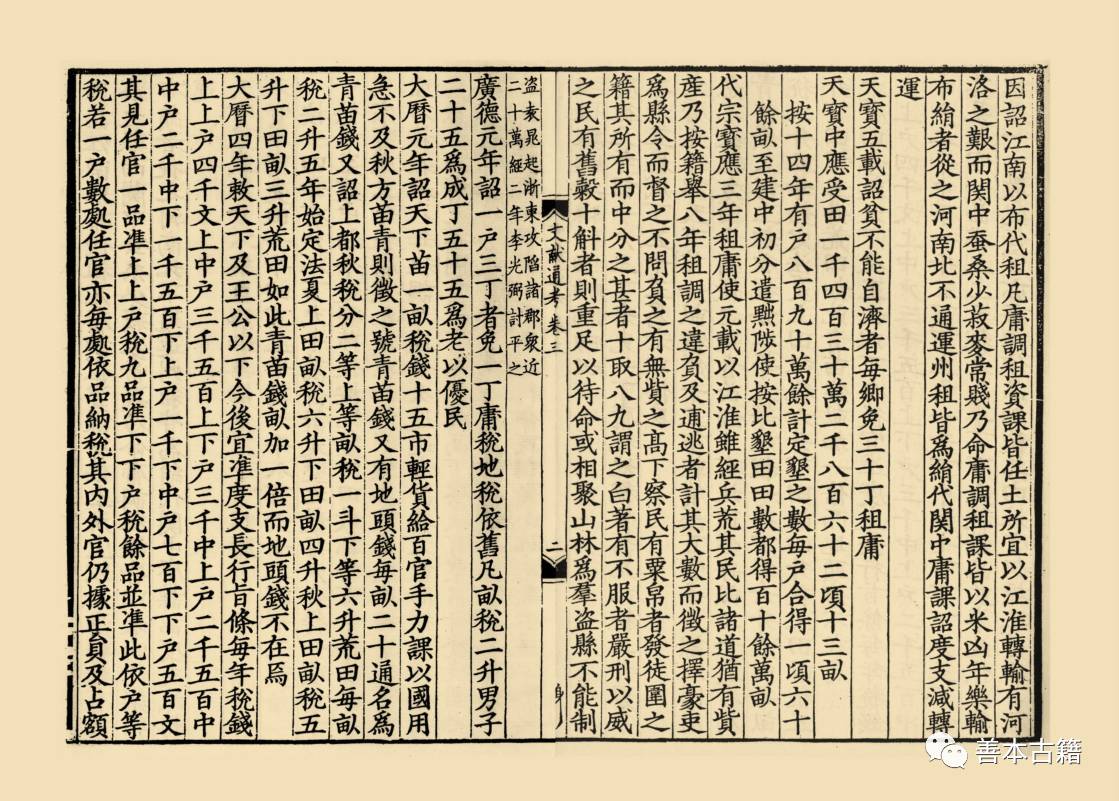 因詔江南以布代租凡庸調租資課皆任土所宜以江淮轉輸有河
洛之艱而関中蚕桑少菽麥常賤乃命庸調租課皆以米凶年樂輸
布絹者從之河南北不通運州租皆爲絹代関中庸課詔度支減轉
運
天寶五載詔貧不能自濟者每鄉免三十丁租庸
天寶中應受田一千四百三十萬二千八百六十二頃十三畝
按十四年有戸八百九十萬餘計定墾之數每戸合得一頃六十
餘畝至建中初分遣黜陟使按比墾田田數都得百十餘萬畝
代宗寶應三年租庸使元載以江淮雖經兵荒其民比諸道猶有貲
產乃按籍舉八年租調之違負及逋逃者計其大數而徵之擇豪吏
爲縣令而督之不問負之有無貲之髙下察民有粟帛者發徒圍之
籍其所有而中分之甚者十取八九謂之白著有不服者嚴刑以威
之民有舊穀十斛者則重足以待命或相聚山林爲羣盗縣不能制
文献通考卷三
二
盗袁晁起浙東攻陷諸郡衆近
二十萬經二年李光弼討平之
廣德元年詔一戸三丁者免一丁庸稅地稅依舊凡畝稅二升男子
二十五爲成丁五十五爲老以優民
大曆元年詔天下苗一畝稅錢十五市輕貨給百官手力課以國用
急不及秋方苗青則徵之號青苗錢又有地頭錢每畝二十通名爲
青苗錢又詔上都秋稅分二等上等畝稅一斗下等六升荒田每畝
稅二升五年始定法夏上田畝稅六升下田畝四升秋上田畝稅五
升下田畝三升荒田如此青苗錢畝加一倍而地頭錢不在焉
大曆四年敕天下及王公以下今後宜準度支長行㫖條每年稅錢
上上戸四千文上中戸三千五百上下戸三千中上戸二千五百中
中戸二千中下一千五百下上戸一千下中戸七百下下戸五百文
其見任官一品準上上戸稅九品準下下戸稅餘品並準此依戸等
稅若一戸數處任官亦每處依品納稅其内外官仍據正員及占額
善本古籍